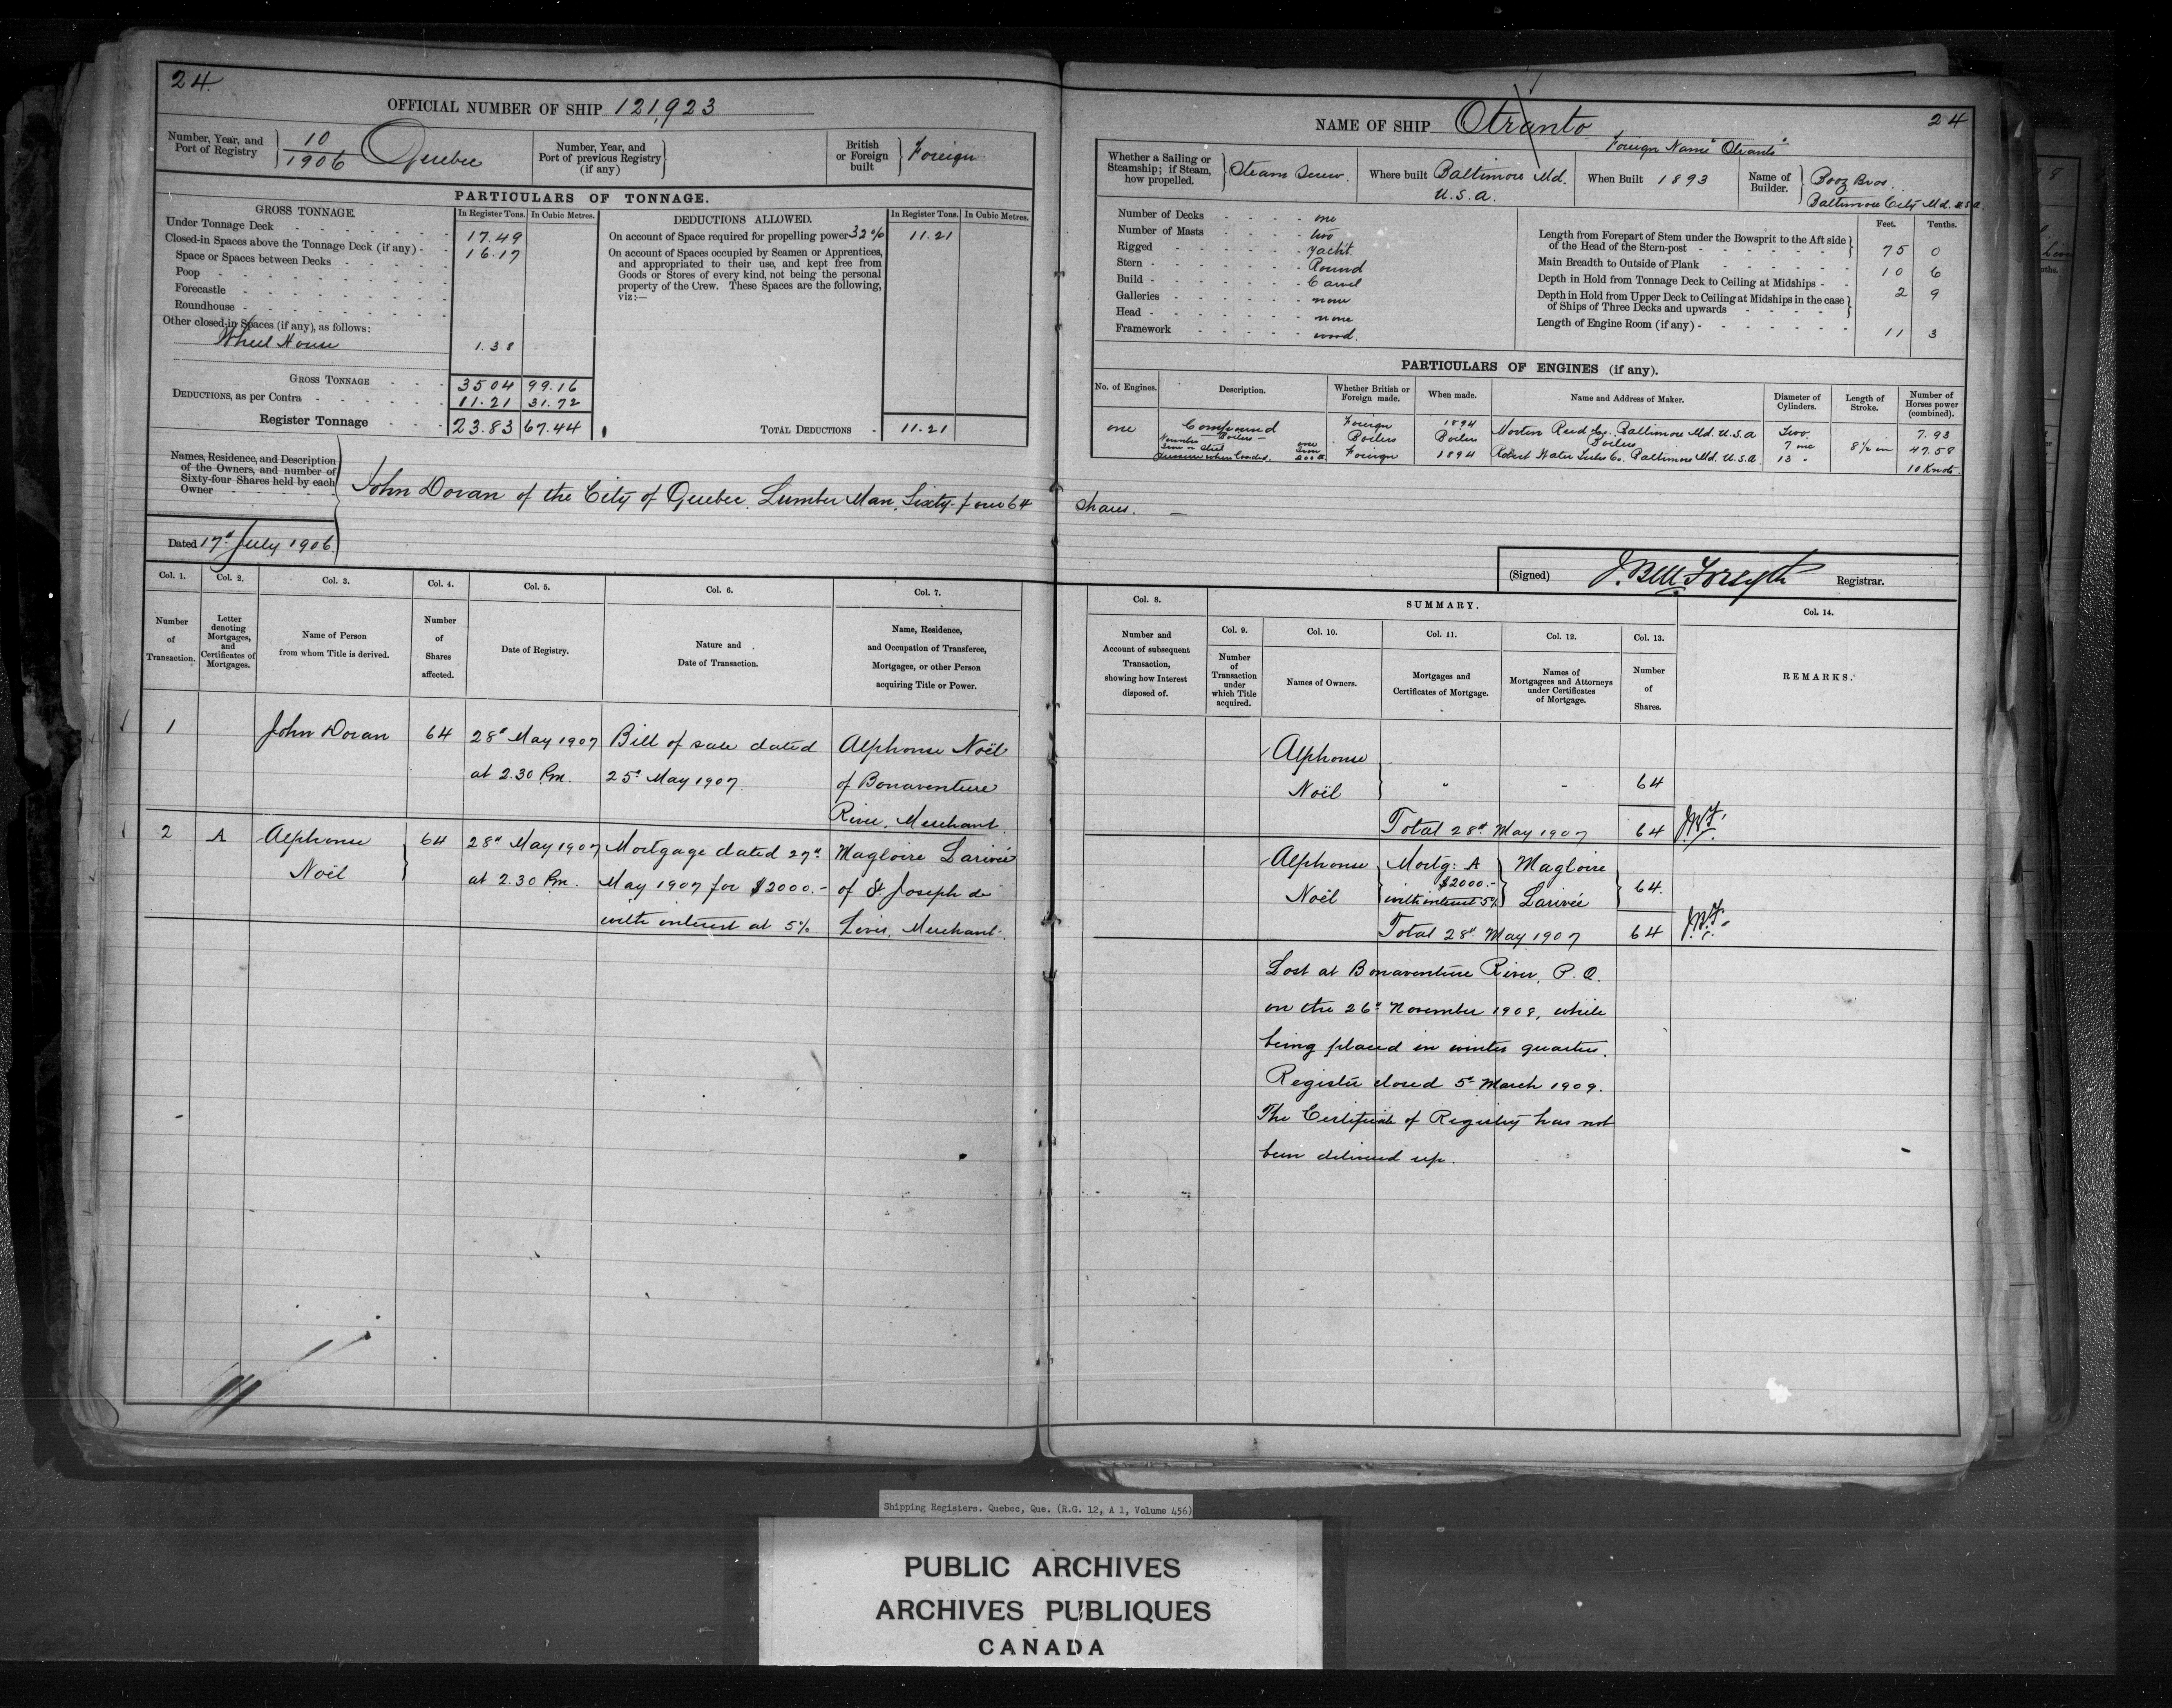 24.
OFFICIAL NUMBER OF SHIP 121,923
Number, Year, and Port of Registry } 10/1906 Quebec
Number, Year, and Port of previous Registry (if any) }
British or Foreign built } Foreign
PARTICULARS OF TONNAGE.
GROSS TONNAGE.
In Register Tons. In Cubic Metres.
Under Tonnage Deck 17.49
Closed-in Spaces above the Tonnage Deck (if any) - 16.17
Space or Spaces between Decks
Poop
Forecastle
Roundhouse
Other closed-in Spaces (if any), as follows:
Wheel House 1.38
GROSS TONNAGE 35 04 99.16
DEDUCTIONS, as per Contra 11.21 31.72
Register Tonnage 23.83 67.44
DEDUCTIONS ALLOWED.
In Register Tons. In Cubic Metres.
On account of Space required for propelling power 32% 11.21
On account of Spaces occupied by Seamen or Apprentices,
and appropriated to their use, and kept free from
Goods or Stores of every kind, not being the personal
property of the Crew. These Spaces are the following,
viz:—
TOTAL DEDUCTIONS 11.21
Names, Residence, and Description
of the Owners, and number of
Sixty-four Shares held by each
Owner
John Doran of the City of Quebec, Lumber Man, Sixty-four 64 Shares. —
Dated 17th July 1906.
NAME OF SHIP Otranto
24
Foreign Name "Otranto"
Whether a Sailing or Steamship; if Steam, how propelled. } Steam Screw.
Where built Baltimore Md. U.S.A.
When Built 1893
Name of Builder. } Booz Bros. Baltimore City Md. U.S.A.
Number of Decks one
Number of Masts two
Rigged Yacht.
Stern Round
Build Carvel
Galleries none
Head none
Framework wood.
Feet. Tenths.
Length from Forepart of Stem under the Bowsprit to the Aft side
of the Head of the Stern-post } 75 0
Main Breadth to Outside of Plank 10 6
Depth in Hold from Tonnage Deck to Ceiling at Midships - 2 9
Depth in Hold from Upper Deck to Ceiling at Midships in the case
of Ships of Three Decks and upwards }
Length of Engine Room (if any) - 11 3
PARTICULARS OF ENGINES (if any).
No. of Engines. Description. Whether British or Foreign made. When made. Name and Address of Maker. Diameter of Cylinders. Length of Stroke. Number of Horses power (combined).
one Compound Foreign 1894 Morton Reed Co. Baltimore Md. U.S.A Two 7.93
Number Boilers — one Boilers Boilers Boilers 7 ins 8½ in 47.58
Iron or Steel Iron
Pressure when loaded. 200 lb. Foreign 1894 Robert Water Tube Co. Baltimore Md. U.S.A 13 " 10 Knots
(Signed) J. Bell Forsyth Registrar.
Col. 1. Col. 2. Col. 3. Col. 4. Col. 5. Col. 6. Col. 7.
Number of Transaction.
Letter denoting Mortgages, and Certificates of Mortgages.
Name of Person from whom Title is derived.
Number of Shares affected.
Date of Registry.
Nature and Date of Transaction.
Name, Residence, and Occupation of Transferee, Mortgagee, or other Person acquiring Title or Power.
Col. 8.
SUMMARY.
Col. 9. Col. 10. Col. 11. Col. 12. Col. 13. Col. 14.
Number and Account of subsequent Transaction, showing how Interest disposed of.
Number of Transaction under which Title acquired.
Names of Owners.
Mortgages and Certificates of Mortgage.
Names of Mortgagees and Attorneys under Certificates of Mortgage.
Number of Shares.
REMARKS.
1 John Doran 64 28th May 1907 Bill of sale dated Alphonse Noël
at 2.30 Pm. 25th May 1907 of Bonaventure
River, Merchant.
2 A Alphonse 64 28th May 1907 Mortgage dated 27th Magloire Larivée
Noël at 2.30 Pm. May 1907 for $2000.- of St Joseph de
with interest at 5% Levis, Merchant.
Alphonse
Noël " - 64
Total 28th May 1907 64 J.B.F.
Alphonse Mortg: A Magloire
Noël $2000.- 64.
with interest 5% Larivée
Total 28th May 1907 64 J.B.F.
Lost at Bonaventure River, P.Q.
on the 26th November 1908, while
being placed in winter quarters.
Register closed 5th March 1909.
The Certificate of Registry has not
been delivered up.
Shipping Registers. Quebec, Que. (R.G. 12, A 1, Volume 456)
PUBLIC ARCHIVES
ARCHIVES PUBLIQUES
CANADA